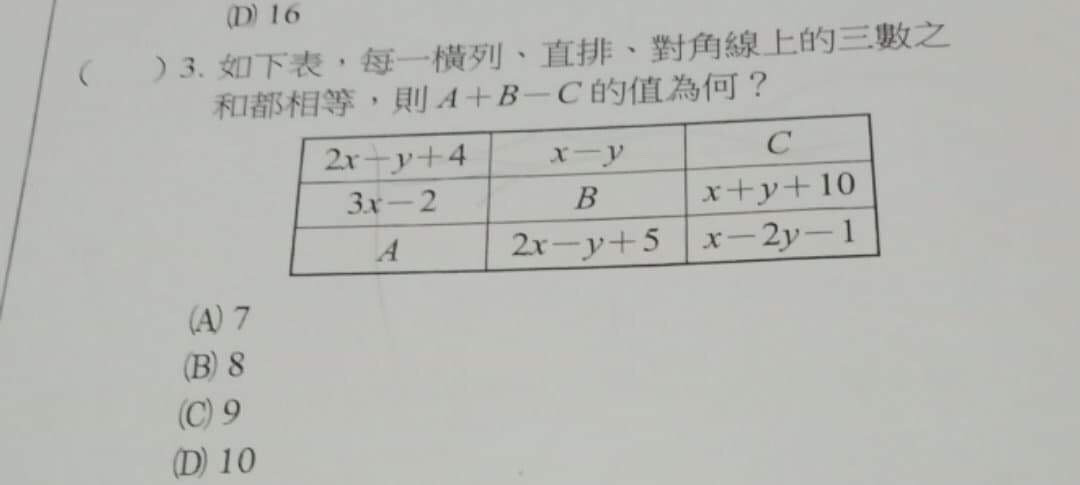 (D) 16
(　) 3. 如下表，每一橫列、直排、對角線上的三數之
和都相等，則 A+B−C 的值為何？
2x−y+4 x−y C
3x−2 B x+y+10
A 2x−y+5 x−2y−1
(A) 7
(B) 8
(C) 9
(D) 10